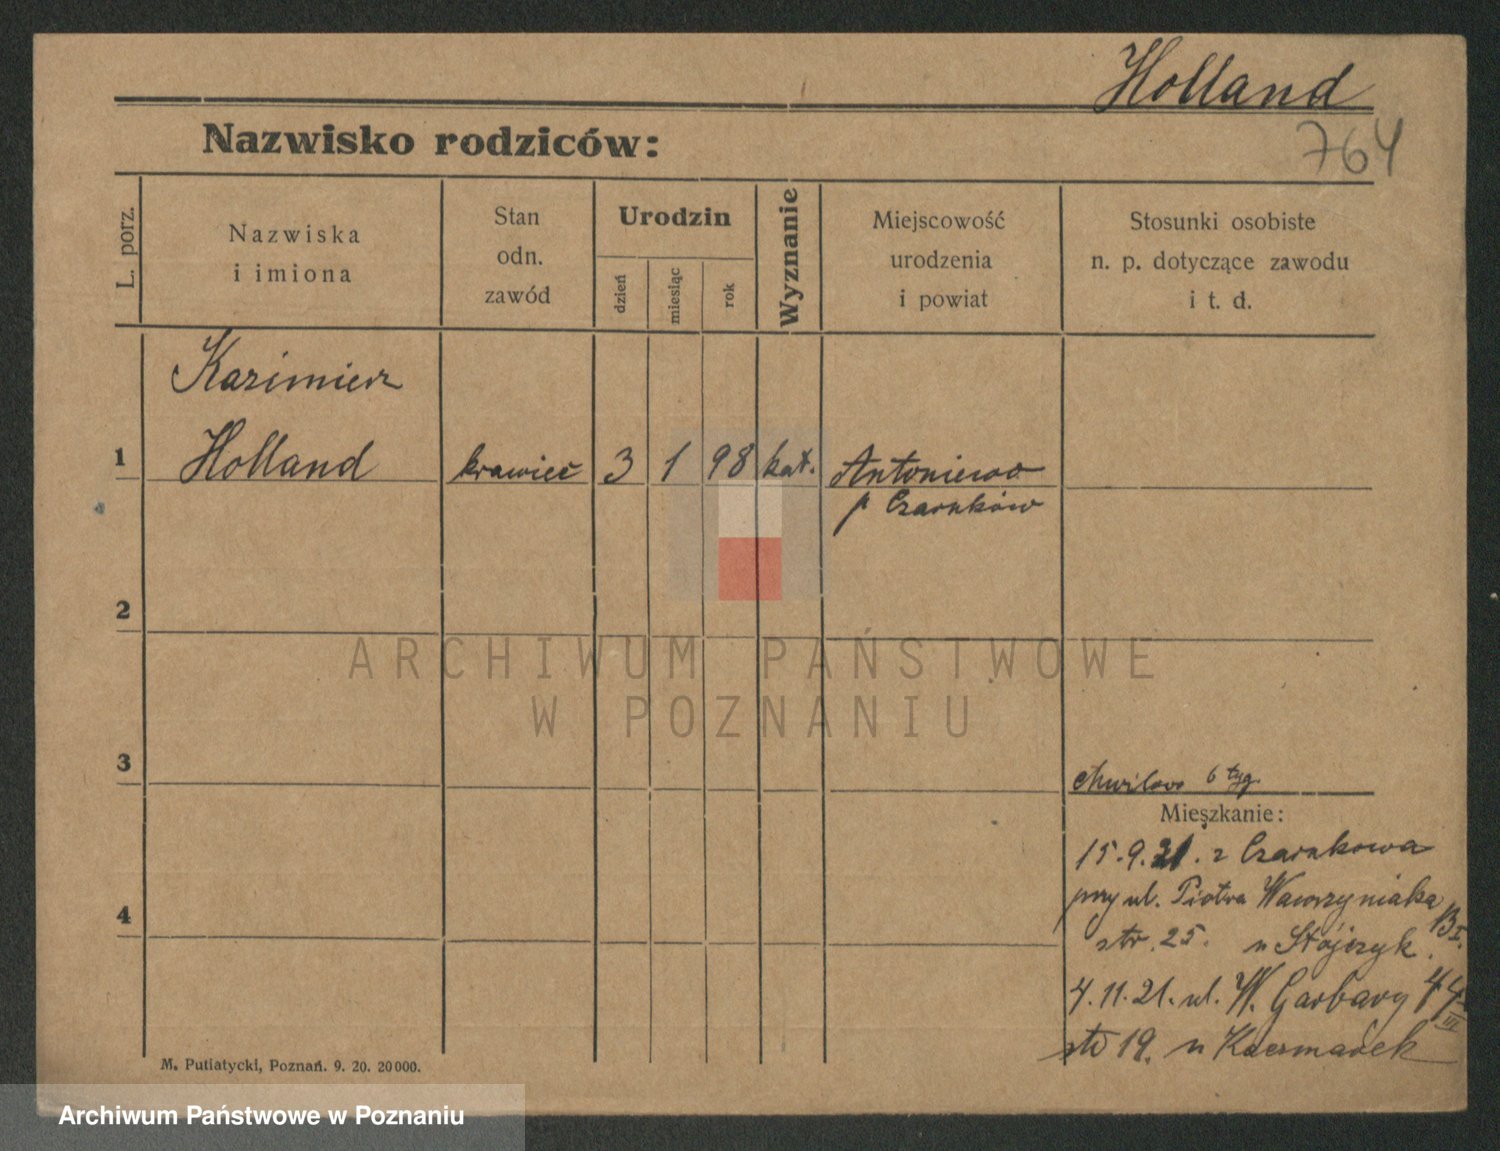 Holland
764
Nazwisko rodziców:
L. porz.
Nazwiska
i imiona
Stan
odn.
zawód
Urodzin
dzień
miesiąc
rok
Wyznanie
Miejscowość
urodzenia
i powiat
Stosunki osobiste
n. p. dotyczące zawodu
i t. d.
Kazimierz
1 Holland krawiec 3 1 98 kat. Antoniewo
p Czarnków
2
ARCHIWUM PAŃSTWOWE
W POZNANIU
3
chwilowo 6 tyg.
Mieszkanie:
15.9.21. z Czarnkowa
przy ul. Piotra Wawrzyniaka 13 I.
str. 25. u Stójczyk.
4
4.11.21. ul. W. Garbary 44 III
str 19. u Kaczmarek
M. Putiatycki, Poznań. 9. 20. 20000.
Archiwum Państwowe w Poznaniu